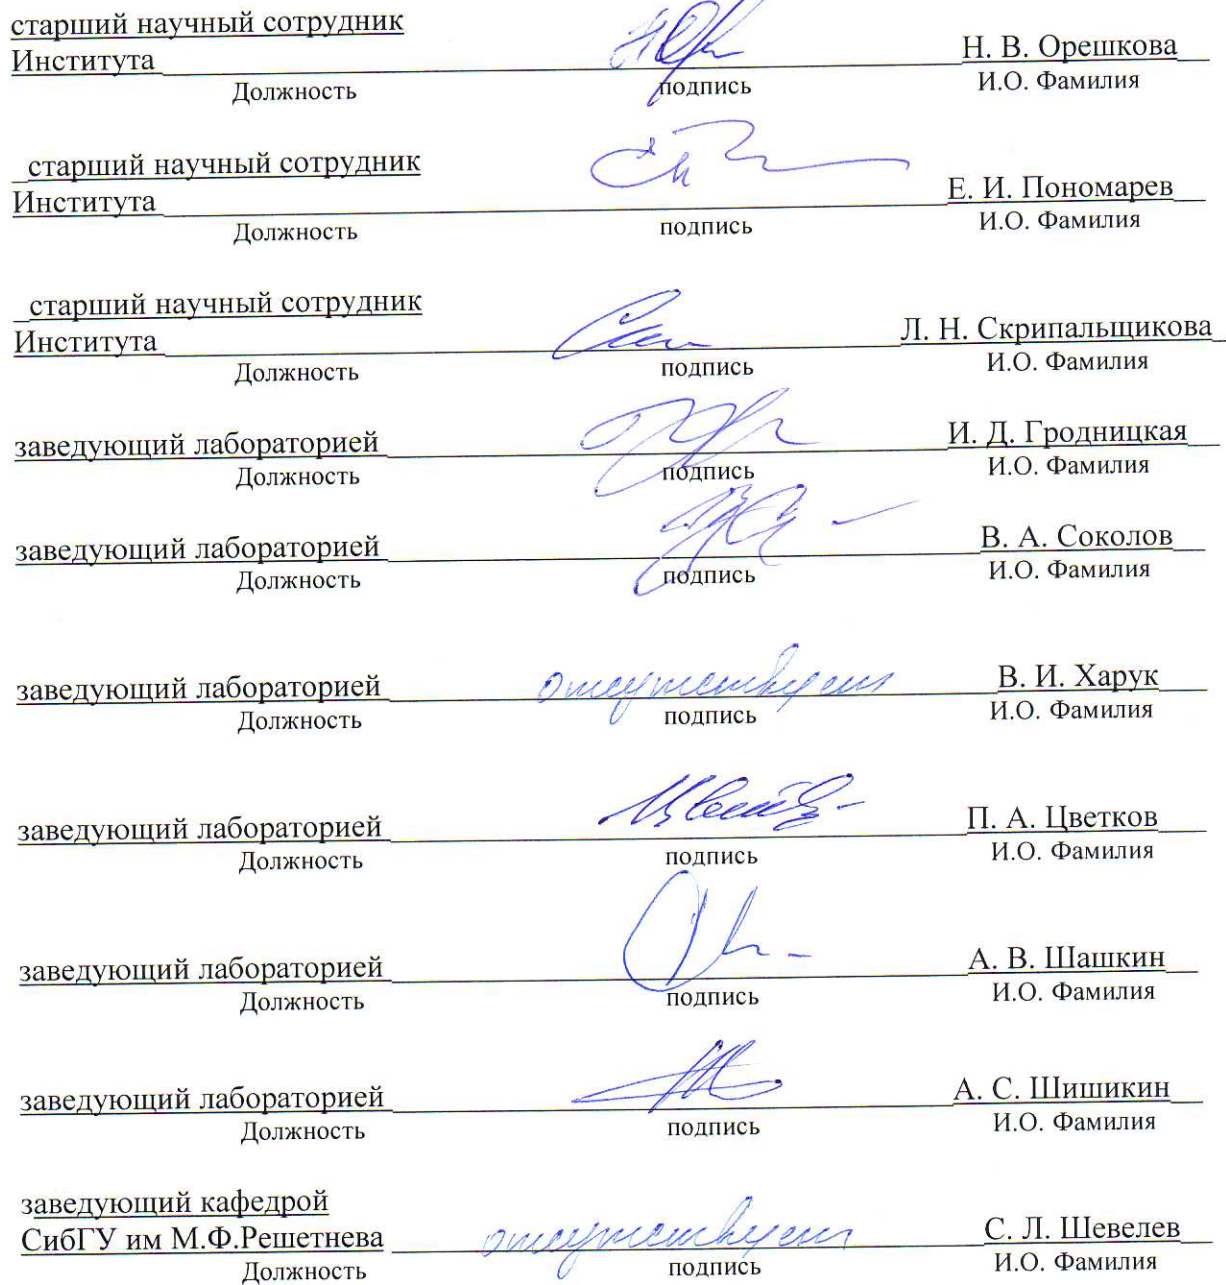 старший научный сотрудник
Института Н. В. Орешкова
Должность подпись И.О. Фамилия
старший научный сотрудник
Института Е. И. Пономарев
Должность подпись И.О. Фамилия
старший научный сотрудник
Института Л. Н. Скрипальщикова
Должность подпись И.О. Фамилия
заведующий лабораторией И. Д. Гродницкая
Должность подпись И.О. Фамилия
заведующий лабораторией В. А. Соколов
Должность подпись И.О. Фамилия
заведующий лабораторией отсутствует В. И. Харук
Должность подпись И.О. Фамилия
заведующий лабораторией П. А. Цветков
Должность подпись И.О. Фамилия
заведующий лабораторией А. В. Шашкин
Должность подпись И.О. Фамилия
заведующий лабораторией А. С. Шишикин
Должность подпись И.О. Фамилия
заведующий кафедрой
СибГУ им М.Ф.Решетнева отсутствует С. Л. Шевелев
Должность подпись И.О. Фамилия